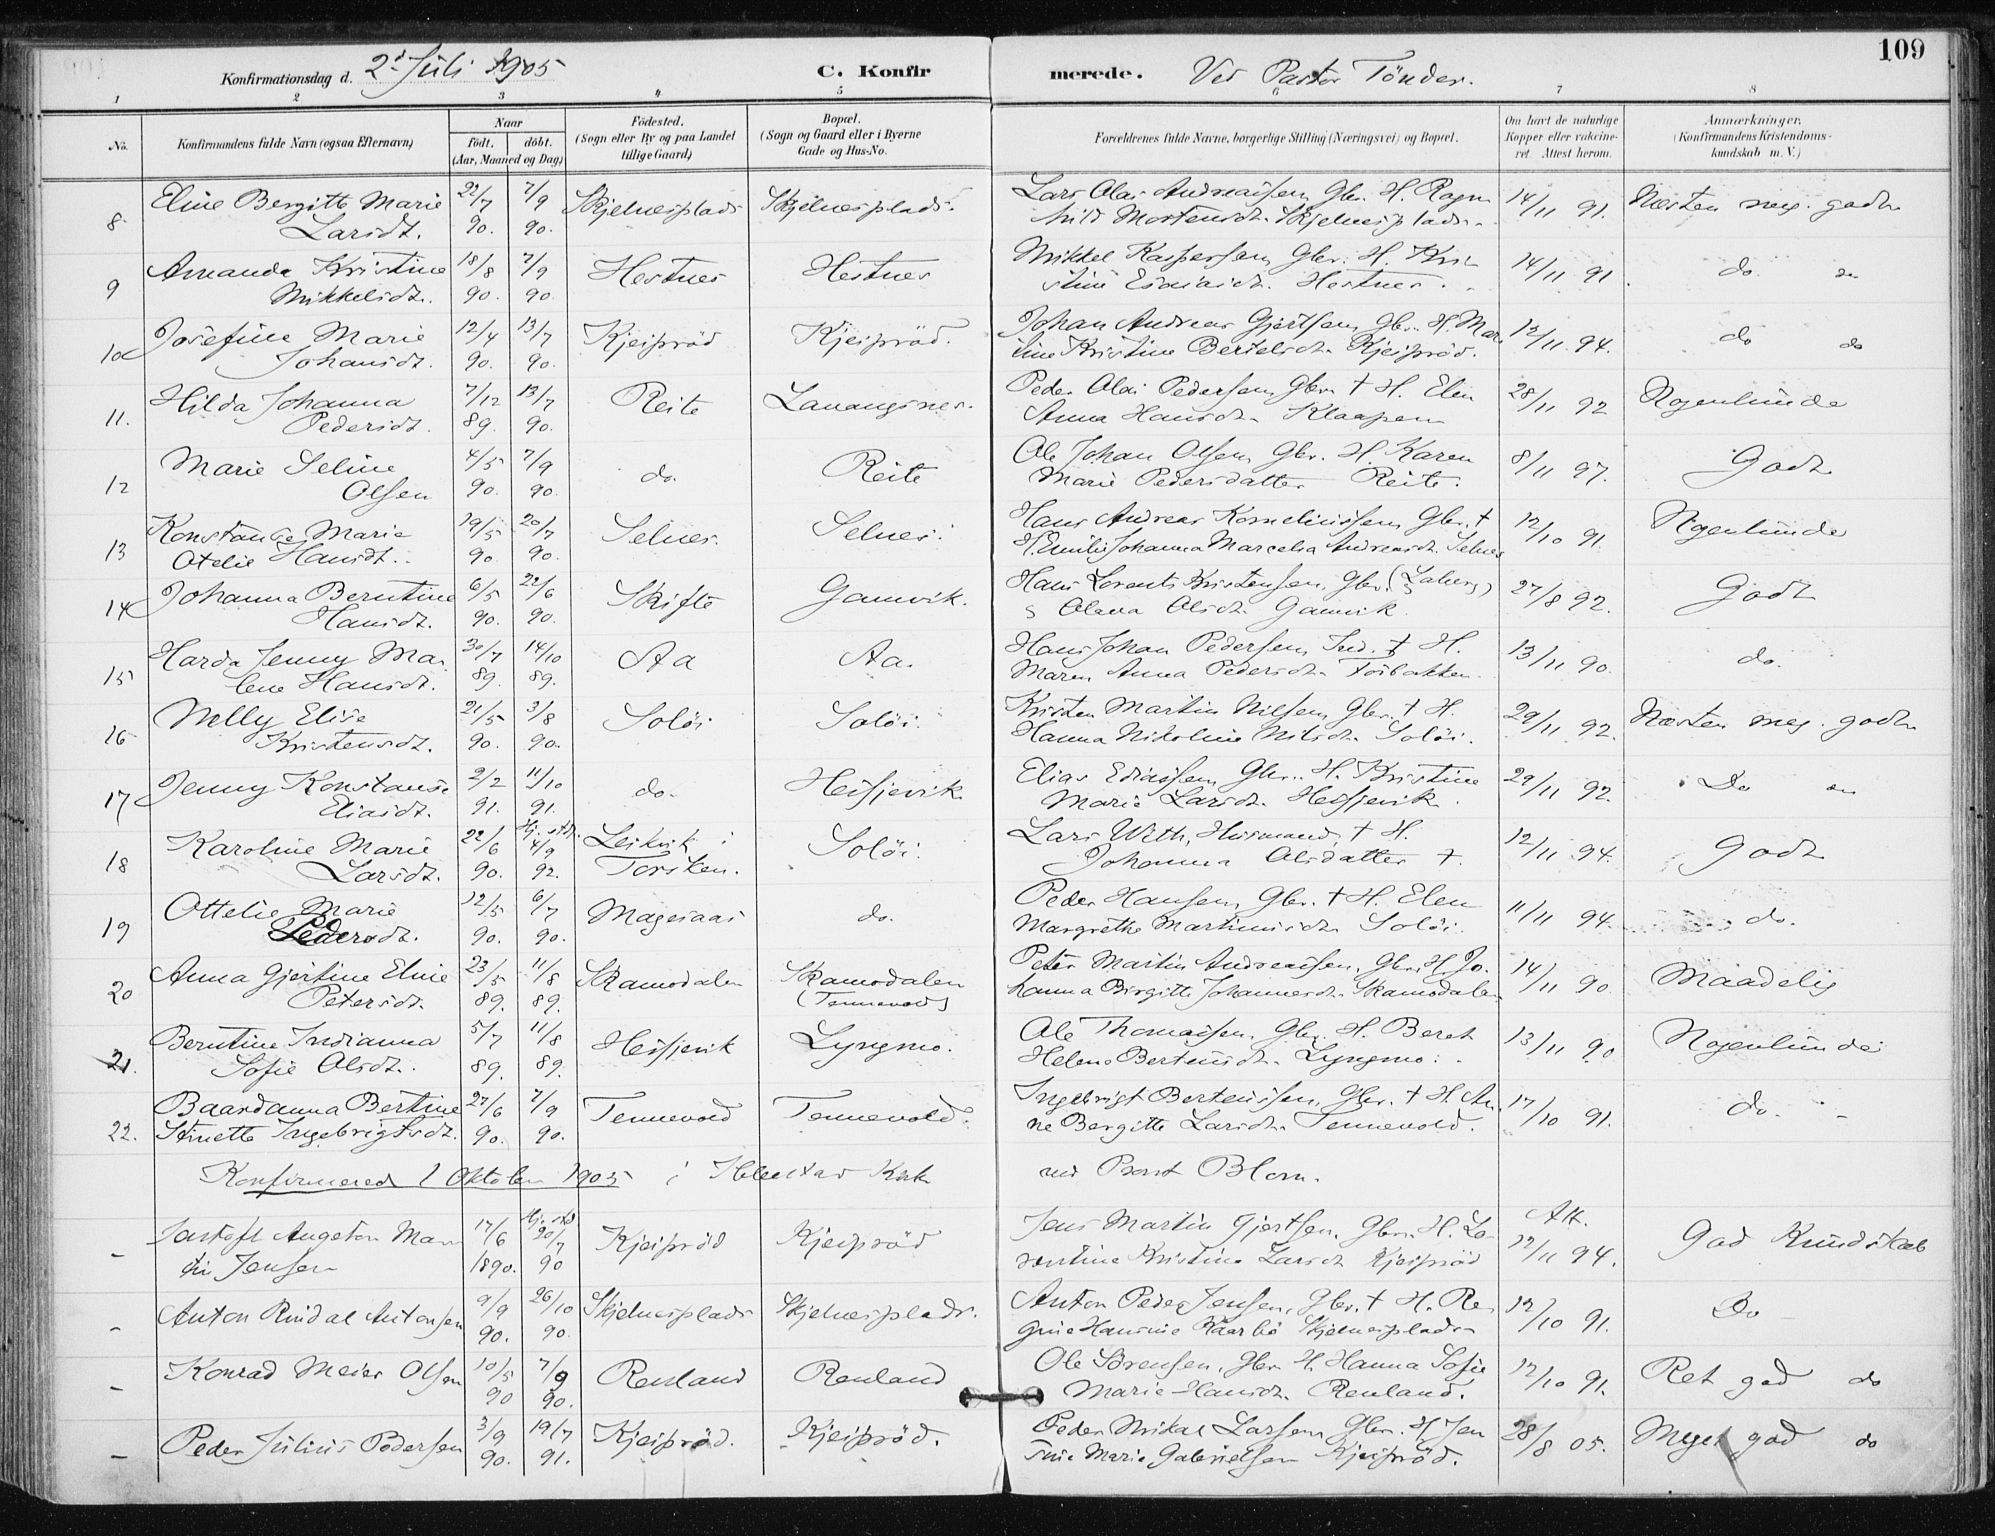 109
Konfirmationsdag d. 2d Juli 1905 C. Konfirmerede. Ved Pastor Tönder.
1 2 3 4 5 6 7 8
No. Konfirmandens fulde Navn (ogsaa Efternavn) Naar födt. döbt. (Aar, Maaned og Dag) Födested. (Sogn eller By og paa Landet tillige Gaard) Bopæl. (Sogn og Gaard eller i Byerne Gade og Hus-No. Forældrenes fulde Navne, borgerlige Stilling (Næringsvei) og Bopæl. Om havt de naturlige Kopper eller vakcineret. Attest herom. Anmærkninger. (Konfirmandens Kristendomskundskab m. V.)
Eline Bergitte Marie 22/7 7/9 Skjelnesplads Skjelnesplads. Lars Olai Andreassen, Gbr. H. Ragn 14/11 91. Næsten meg. godt
8 Larsdt. 90. 90. hild Mortensdt. Skjelnesplads.
Amanda Kristine 18/8 7/9 Hestnes Hestnes Mikkel Kaspersen, Gbr. H. Kri 14/11 91. do do
9 Mikkelsdt. 90. 90. stine Esaiasdt. Hestnes.
Josefine Marie 12/4 13/7 Kjeipröd Kjeipröd. Johan Andreas Gjertsen, Gbr. H. Mar 12/11 94. do do
10 Johansdt. 90. 90. tine Kristine Bertelsdt. Kjeipröd.
Hilda Johanna 7/12 13/7 Reite Lavangsnes. Peder Olai Pedersen, Gbr. † H. Elen 28/11 92 Nogenlunde
11. Pedersdt. 89. 90. Anna Hansdt. Klaapen
Marie Seline 4/5 7/9 do. Reite Ole Johan Olsen, Gbr. H. Karen 8/11 97. Godt
12 Olsen 90. 90. Marie Pedersdatter Reite.
Konstanse Marie 19/5 20/7 Selnes. Selnes. Hans Andreas Korneliussen, Gbr. † 12/10 91. Nogenlunde
13 Otelie Hansdt. 90. 90. H. Emilie Johanna Marcelia Andreasdt. Selnes
Johanna Berntine 6/5 22/6 Skifte Gamvik. Hans Lorents Kristensen, Gbr. 27/8 92. Godt
14 Hansdt. 90. 90. Olava Olsdt. Gamvik.
Harda Jenny Ma 30/7 14/10 Aa Aa. Hans Johan Pedersen, Ind. † H. 13/11 90. do.
15 lene Hansdt. 89. 89. Maren Anna Pedersdt. Fosbakken.
Nelly Elise 21/5 3/8 Solöi Solöi. Kristen Martin Nilsen, Gbr. † H. 29/11 92. Næsten meg. godt
16 Kristensdt. 90. 90. Hanna Nikoline Nilsdt. Solöi.
Jenny Konstanse 2/2 11/10 do. Hesjevik Elias Eliassen, Gbr. H. Kristine 29/11 92. Do do
17 Eliasdt. 91. 91. Marie Larsdt. Hesjevik.
Karoline Marie 22/6 Hj. död. 4/9 Leikvik i Solöi. Lars With, Husmand, † H. 12/11 94. Godt
18 Larsdt. 90. 92. Torsken. Johanna Olsdatter †.
Ottelie Marie 12/5 6/7 Magesaas do. Peder Hansen, Gbr. † H. Elen 11/11 94. do.
19 Pedersdt. 90. 90. Margrethe Martinusdt. Solöi.
Anna Gjertine Elnie 23/5 11/8 Skamodalen Skamodalen Peter Martin Andreassen, Gbr. H. Jo 14/11 90. Maadelig
20 Petersdt. 89. 89. (Tennevold) hanna Birgitte Johannesdt. Skamodalen
Berntine Indianna 5/7 11/8 Hesjevik Lyngmo. Ole Thomassen, Gbr. H. Beret 13/11 90 Nogenlunde
21. Sofie Olsdt. 89. 89. Helene Berteusdt. Lyngmo.
Baardanna Bertine 27/6 7/9 Tennevold Tennevold. Ingebrigt Berteussen, Gbr. † H. An 17/10 91. do.
22. Stinette Ingebrigtsdt. 90. 90. ne Bergitte Larsdt. Tennevold.
Konfirmered 1 Oktober 1905 i Ibbestad Kirk ved Provst Blom.
Augeton Mar 17/6 Hj. död 20/7 Kjeipröd Kjeipröd Jens Martin Gjertsen, Gbr. H. La Att. 12/11 94. God Kundskab
– tin Jensen 1890. 90 rentine Kristine Larsdt. Kjeipröd
– Anton Rindal Antonsen 9/9 90. 26/10 90. Skjelnesplads Skjelnesplads. Anton Peder Jensen, Gbr. † H. Re 12/10 91. Do
gine Hansine Kaarbö Skjelnesplads
– Konrad Meier Olsen 10/5 90 7/9 90. Renland Renland Ole Sörensen, Gbr. H. Hanna Sofie 12/10 91. Ret god do
Marie Hansdt. Renland.
– Peder Julius Pedersen 3/9 90. 19/7 91. Kjeipröd. Kjeipröd. Peder Mikal Larsen, Gbr. H. Jen 28/8 05. Meget god do
sine Marie Gabrielsen Kjeipröd.